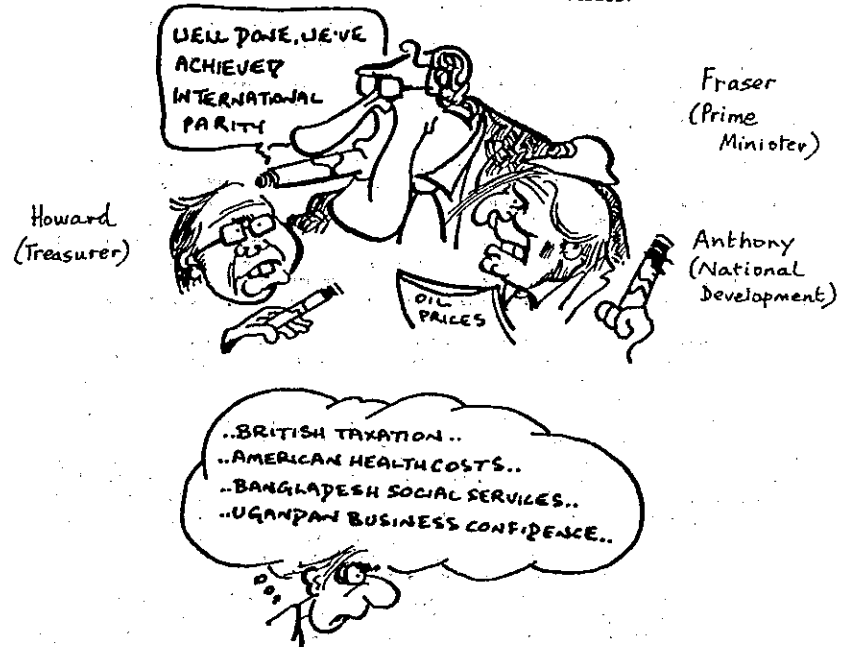 WELL DONE, WE'VE
ACHIEVED
INTERNATIONAL
PARITY
Fraser
(Prime
Minister)
Howard
(Treasurer)
Anthony
(National
Development)
OIL
PRICES
..BRITISH TAXATION..
..AMERICAN HEALTH COSTS..
..BANGLADESH SOCIAL SERVICES..
..UGANDAN BUSINESS CONFIDENCE..